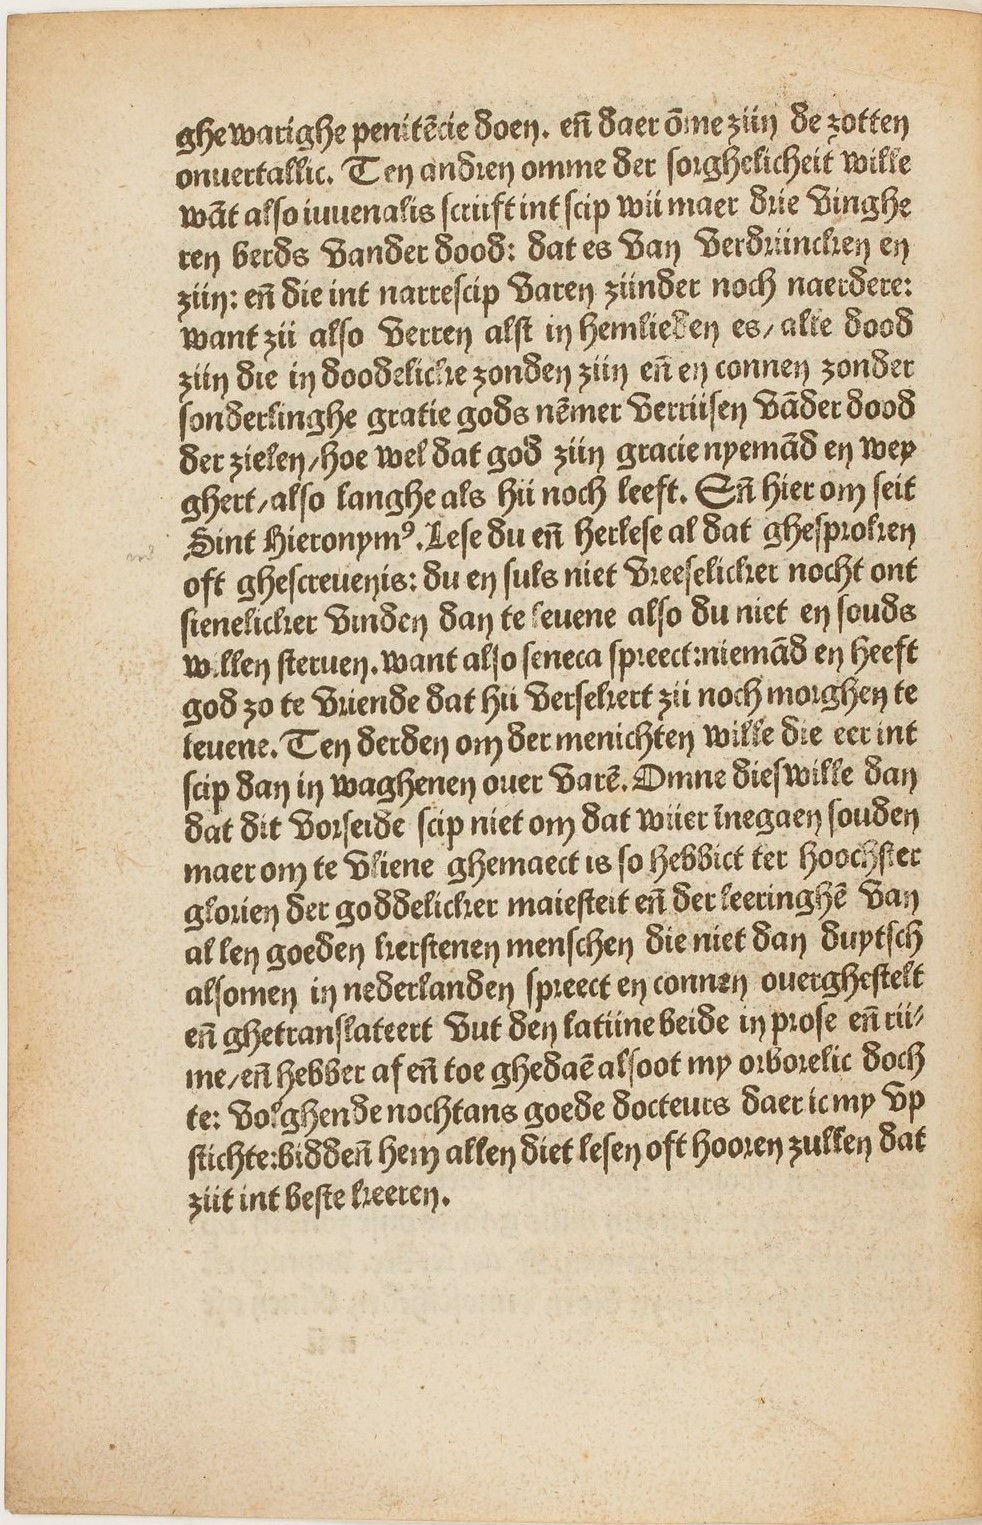 ghewarighe penitẽcie doen. eñ daer õme ziin de zotten
onuertallic. Ten andren omme der sorghelicheit wille
wãt also iuuenalis scriift int scip wii maer drie vinghe
ren berds vander dood: dat es van verdriincken en
ziin: eñ die int narrescip varen ziinder noch naerdere:
want zii also verren alst in hemlieden es/ alle dood
ziin die in doodelicke zonden ziin eñ en connen zonder
sonderlinghe gratie gods nẽmer verriisen vãder dood
der zielen/hoe wel dat god ziin gracie nyemãd en wey
ghert/also langhe als hii noch leeft. Eñ hier om seit
Sint Hieronymꝰ. Lese du eñ herlese al dat ghesproken
oft ghescreuenis: du en suls niet vreeselicker nocht ont
sienelicker vinden dan te leuene also du niet en souds
willen steruen. want also seneca spreect: niemãd en heeft
god zo te vriende dat hii versekert zii noch morghen te
leuene. Ten derden om der menichten wille die eer int
scip dan in waghenen ouer varẽ. Omne dieswille dan
dat dit vorseide scip niet om dat wiier ĩnegaen souden
maer om te vliene ghemaect is so hebbict ter hoochster
glorien der goddelicker maiesteit eñ der leeringhẽ van
al len goeden kerstenen menschen die niet dan duytsch
alsomen in nederlanden spreect en connen ouerghestelt
eñ ghetranslateert vut den latiine beide in prose eñ rii/
me/eñ hebber af eñ toe ghedaẽ alsoot my orborelic doch
te: volghende nochtans goede docteurs daer ic my vp
stichte: biddeñ hem allen diet lesen oft hooren zullen dat
ziit int beste keeren.